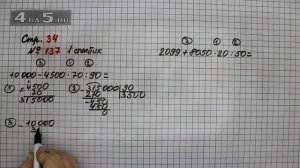 4 OF 5 RU
Стр. 34
№ 137 1 столбик
③ ① ②
10 000 - 4500 · 70 : 90 =
③ ① ②
2099 + 8050 · 20 : 50 =
① × 4500
70
315000
② - 315000 | 90
270 3500
- 450
450
0
③ - 10000
3